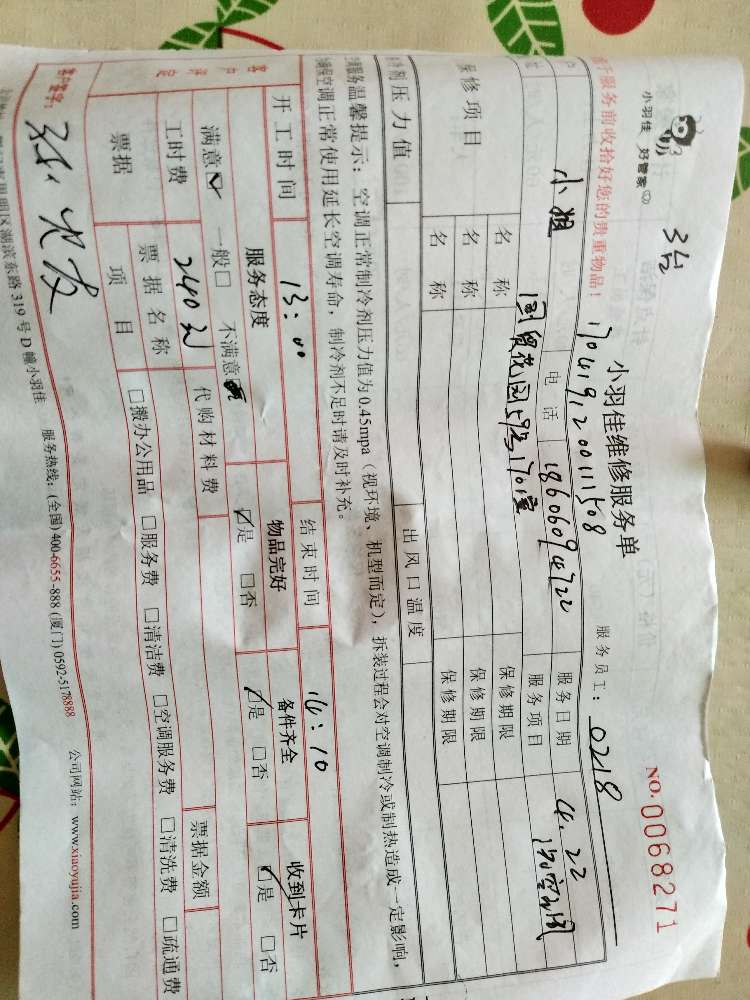 小羽佳 好管家
3台
小羽佳维修服务单
NO. 0068271
服务前收拾好您的贵重物品！
170419120011508
服务员工：0218
小姐
电话 18606094722
服务日期 4.22
国贸花园59号1701室
服务项目
保修项目
名称 保修期限
名称 保修期限
名称 保修期限
压力值
出风口温度
温馨提示：空调正常制冷剂压力值为0.45mpa（视环境、机型而定），拆装过程会对空调制冷或制热造成一定影响，
空调正常使用延长空调寿命，制冷剂不足时请及时补充。
开工时间 13:00 结束时间 14:10
客户评定
服务态度 物品完好 备件齐全 收到卡片
满意☑ 一般□ 不满意 ☑是 □否 ☑是 □否 ☑是 □否
工时费 240元 代购材料费
票据 票据名称 票据金额
项目 □搬办公用品 □服务费 □清洁费 □空调服务费 □清洗费 □疏通费
客户签字：
湖滨东路319号D幢小羽佳 服务热线：(全国) 400-6655-888 (厦门) 0592-5178888 公司网站：www.xiaoyujia.com